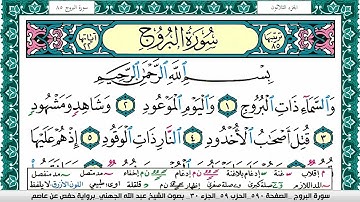 الجزء الثلاثون
سورة البروج ٨٥
سُورَةُ البُرُوجِ
بِسْمِ اللَّهِ الرَّحْمَٰنِ الرَّحِيمِ
وَالسَّمَاءِ ذَاتِ الْبُرُوجِ ١ وَالْيَوْمِ الْمَوْعُودِ ٢ وَشَاهِدٍ وَمَشْهُودٍ
٣ قُتِلَ أَصْحَابُ الْأُخْدُودِ ٤ النَّارِ ذَاتِ الْوَقُودِ ٥ إِذْ هُمْ عَلَيْهَا
سورة البروج - الصفحة ٥٩٠ - الحزب ٥٩ - الجزء ٣٠ - بصوت الشيخ عبد الله الجهني برواية حفص عن عاصم